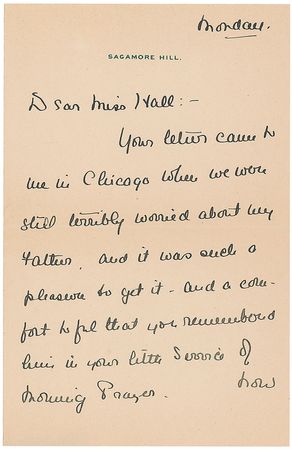 Monday.
SAGAMORE HILL.
Dear Miss Hall:-
Your letter came to
me in Chicago when we were
still terribly worried about my
Father, and it was such a
pleasure to get it - and a com-
fort to feel that you remembered
him in your little Service of
Morning Prayer. Now